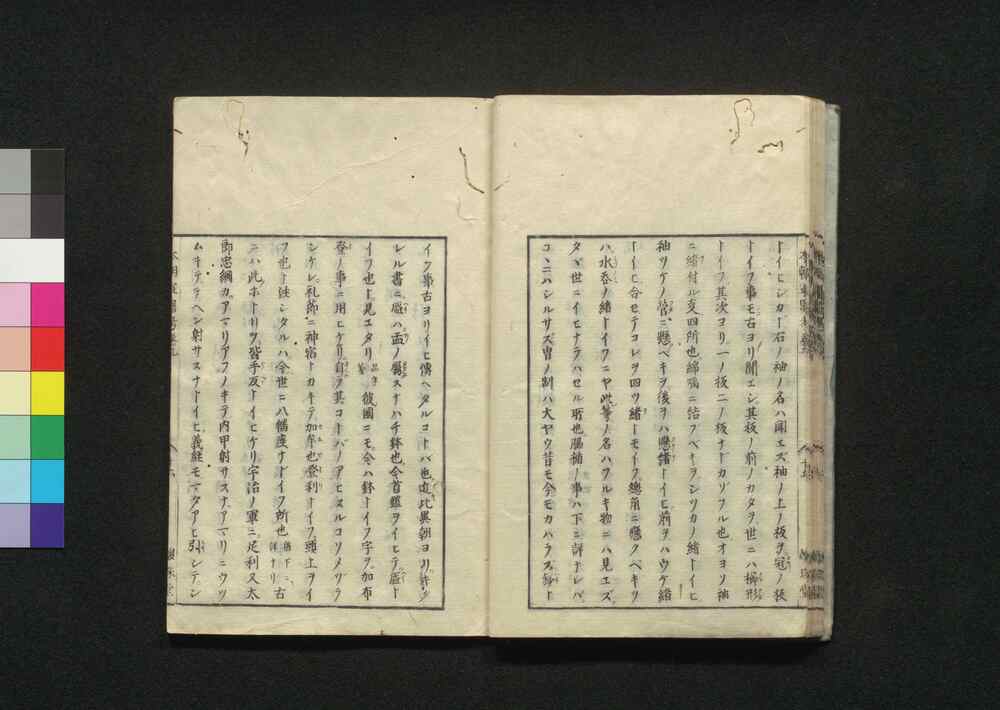 トイヒシカド石ノ袖ノ名ハ聞エズ袖ノ上ノ板ヲ冠ノ板
トイフ事モ古ヨリ聞エシ其板ノ前ノカタヲ世ニハ櫛形
トイフ其次ヨリ一ノ板二ノ板ナドカゾフル也オヨソ袖
ニ緒付ル支四所也綿嚙ニ結フベキヲシツカノ緒トイヒ
袖ツケノ管ニ懸ベキヲ後ヲハ懸緒トイヒ前ヲハウケ緒
トイヒ合セテコレヲ四ツ緒トモイフ總角ニ懸クベキヲ
ハ水呑ノ緒トイフニヤ此等ノ名ハフルキ物ニハ見エズ
タヾ世ニイヒナラハセル所也脇楯ノ事ハ下ニ詳ナレバ
コヽニハシルサズ冑ノ制ハ大ヤウ昔モ今モカハラズ鉢ト
イフ事古ヨリイヒ傳ヘタルコトバ也近比異朝ヨリ
レル書ニ盔ハ盂ノ屬スナハチ鉢也今首鎧ヲイヒテ盔ト
イフ也ト見エタリ 彼國ニモ今ハ鉢トイフ字ヲ加布
登ノ事ニ用ヒケリ自ラ其コトバノアヒスルコソメヅラ
シケレ札節ニ神宿トカキテ加牟也登利トイフ頭上ヲイ
フ也ト注シタルハ今世ニ八幡座ナドイフ所也 猶下ニ詳ナリ 古
ニハ此ホトリヲ皆手反トイヒケリ宇治ノ軍ニ足利又太
郎忠綱カアマリアフノキテ内甲射サスナアマリニウツ
ムキテテヘン射サスナトイヒ義経モマタアヒ引シテシ